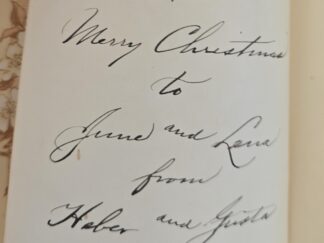 Merry Christmas
to
June and Lena
from
Heber and Gusta